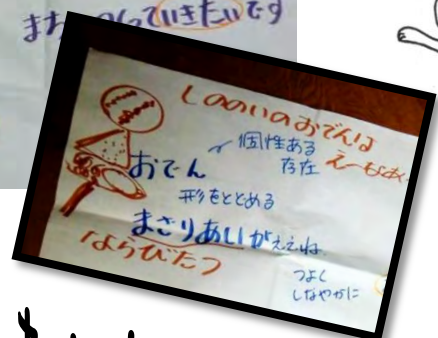 まち
っていきたいです
しののいのおでんは
個性ある
存在
おでん
形をとどめる
まざりあいがええね
ならびたつ
つよく
しなやかに